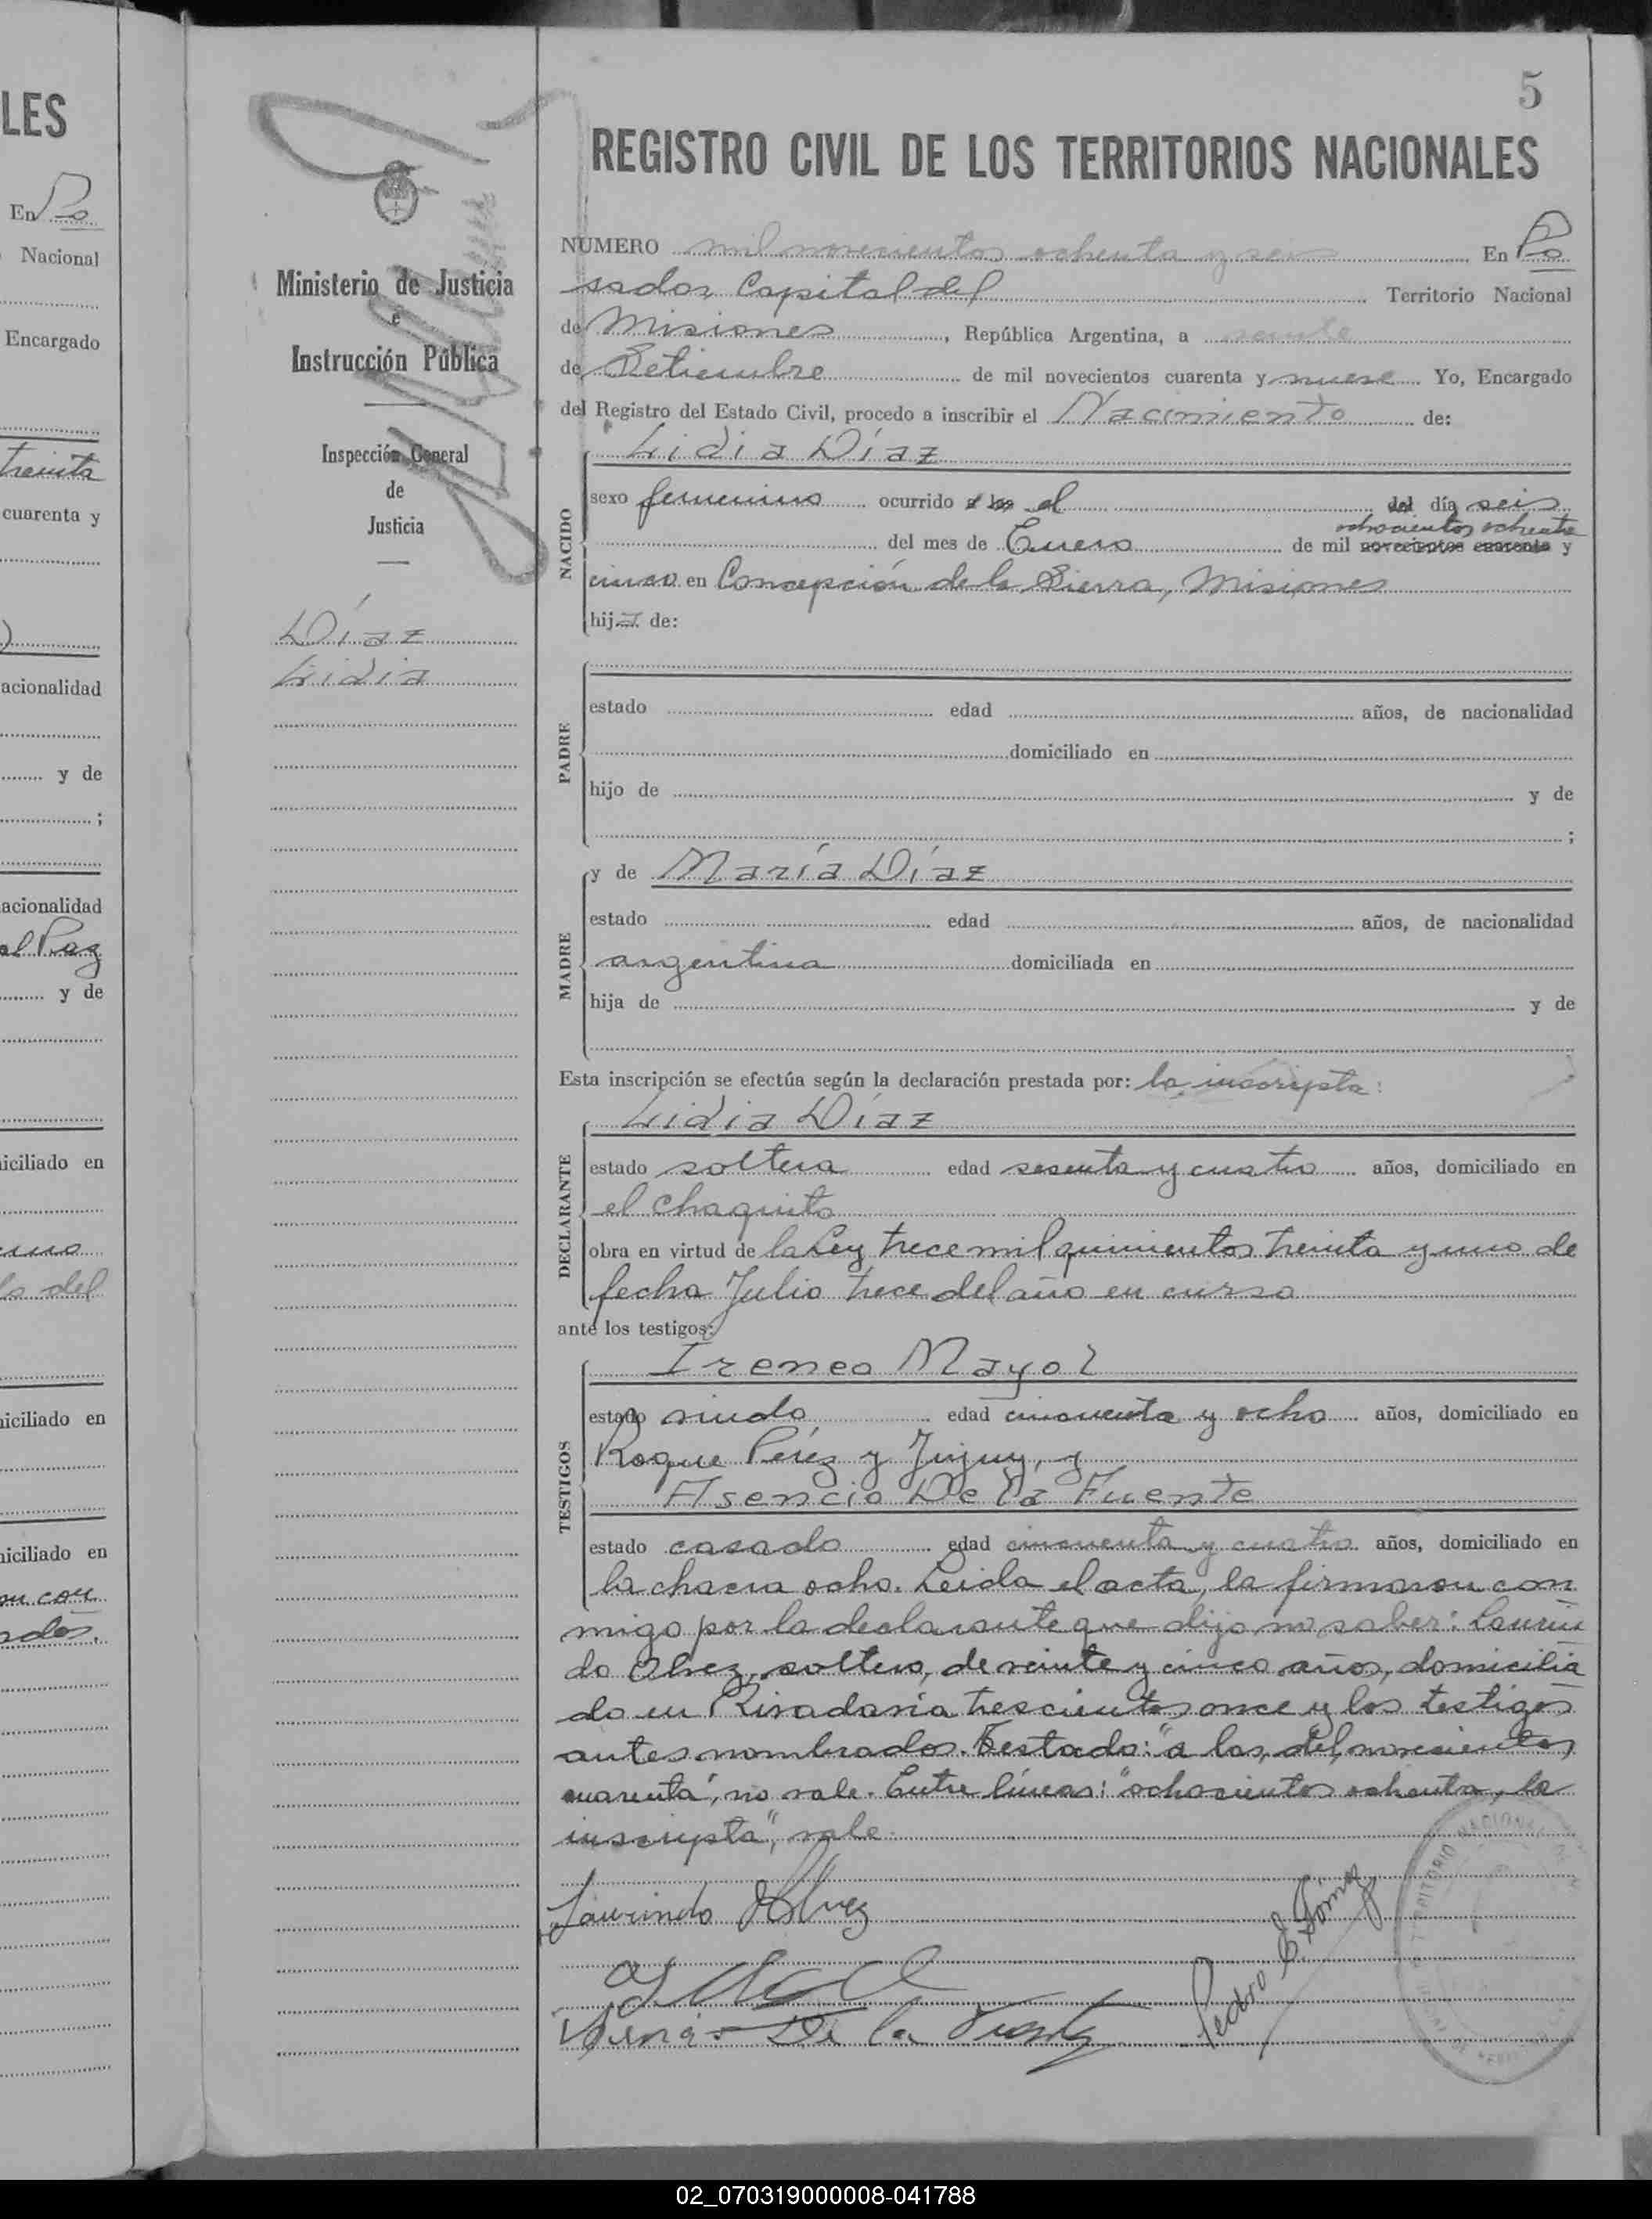 LES
En Po
Nacional
Encargado
treinta
cuarenta y
acionalidad
y de
;
acionalidad
el Paz
y de
iciliado en
uno
la del
iciliado en
iciliado en
on con
ados.
Ministerio de Justicia
e
Instrucción Pública
Inspección General
de
Justicia
Díaz
Lidia
5
REGISTRO CIVIL DE LOS TERRITORIOS NACIONALES
NUMERO mil novecientos ochenta y seis En Po
sadas, Capital del Territorio Nacional
de Misiones, República Argentina, a veinte
de Setiembre de mil novecientos cuarenta y nueve Yo, Encargado
del Registro del Estado Civil, procedo a inscribir el Nacimiento de:
NACIDO
Lidia Díaz
sexo femenino ocurrido a las el del día seis
ochocientos ochenta
del mes de Enero de mil novecientos cuarenta y
cinco en Concepción de la Sierra, Misiones
hija de:
PADRE
estado edad años, de nacionalidad
domiciliado en
hijo de y de
;
MADRE
y de María Díaz
estado edad años, de nacionalidad
argentina domiciliada en
hija de y de
Esta inscripción se efectúa según la declaración prestada por: la inscripta:
DECLARANTE
Lidia Díaz
estado soltera edad sesenta y cuatro años, domiciliado en
el Chaquito
obra en virtud de la Ley trece mil quinientos treinta y uno de
fecha Julio trece del año en curso
ante los testigos:
TESTIGOS
Ireneo Mayol
estado viudo edad cincuenta y ocho años, domiciliado en
Roque Pérez y Jujuy, y
Asencio De la Fuente
estado casado edad cincuenta y cuatro años, domiciliado en
la chacra ocho. Leida el acta, la firmaron con
migo por la declarante que dijo no saber: Laurin
do Alvez, soltero, de veinte y cinco años, domicilia
do en Rivadavia trescientos once y los testigos
antes nombrados. Testado: "a las, del, novecientos
cuarenta", no vale. Entre líneas: "ochocientos ochenta, la
inscripta", vale.
Laurindo Alvez
De la Fuente
Pedro E. Gómez
TERRITORIO NACIONAL
02_070319000008-041788